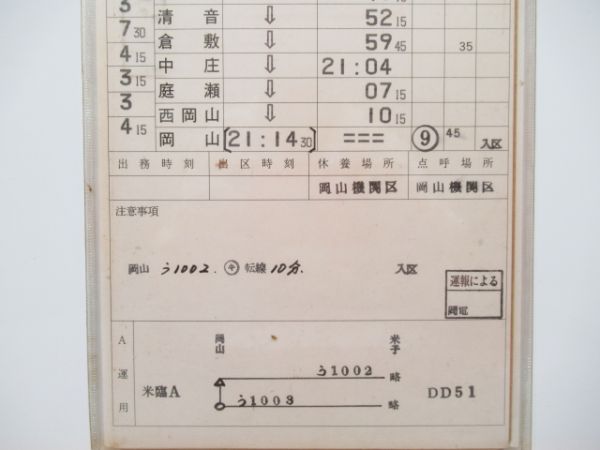 3
清音 ⇩ 52 15
7 30
倉敷 ⇩ 59 45 35
4 15
中庄 ⇩ 21:04
3 15
庭瀬 ⇩ 07 15
3
西岡山 ⇩ 10 15
4 15
岡山 [21:14 30] === ⑨ 45 入区
出務時刻 出区時刻 休養場所 点呼場所
岡山機関区 岡山機関区
注意事項
岡山 う1002. 転線10分. 入区
運報による
関電
A運用
岡山 米子
う1002 略
米臨A DD51
う1003 略